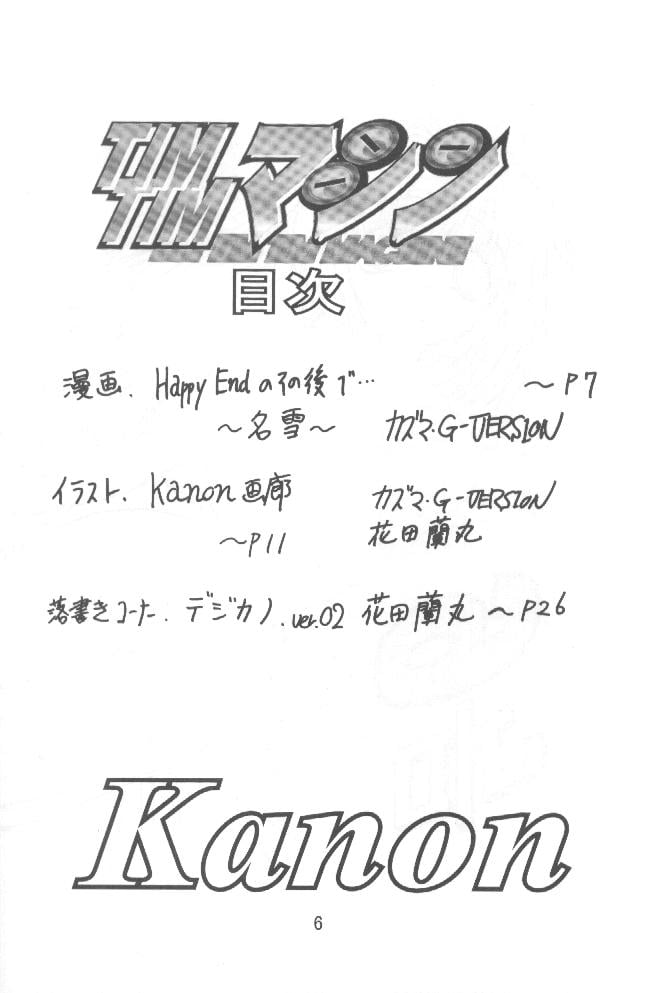 TIM TIM マシン
目次
漫画. Happy End のその後で… 〜P7
〜名雪〜 カズマ・G-VERSION
イラスト. Kanon 画廊 カズマ・G-VERSION
〜P11 花田蘭丸
落書きコーナー. デジカノ. ver.02 花田蘭丸 〜P26
Kanon
6